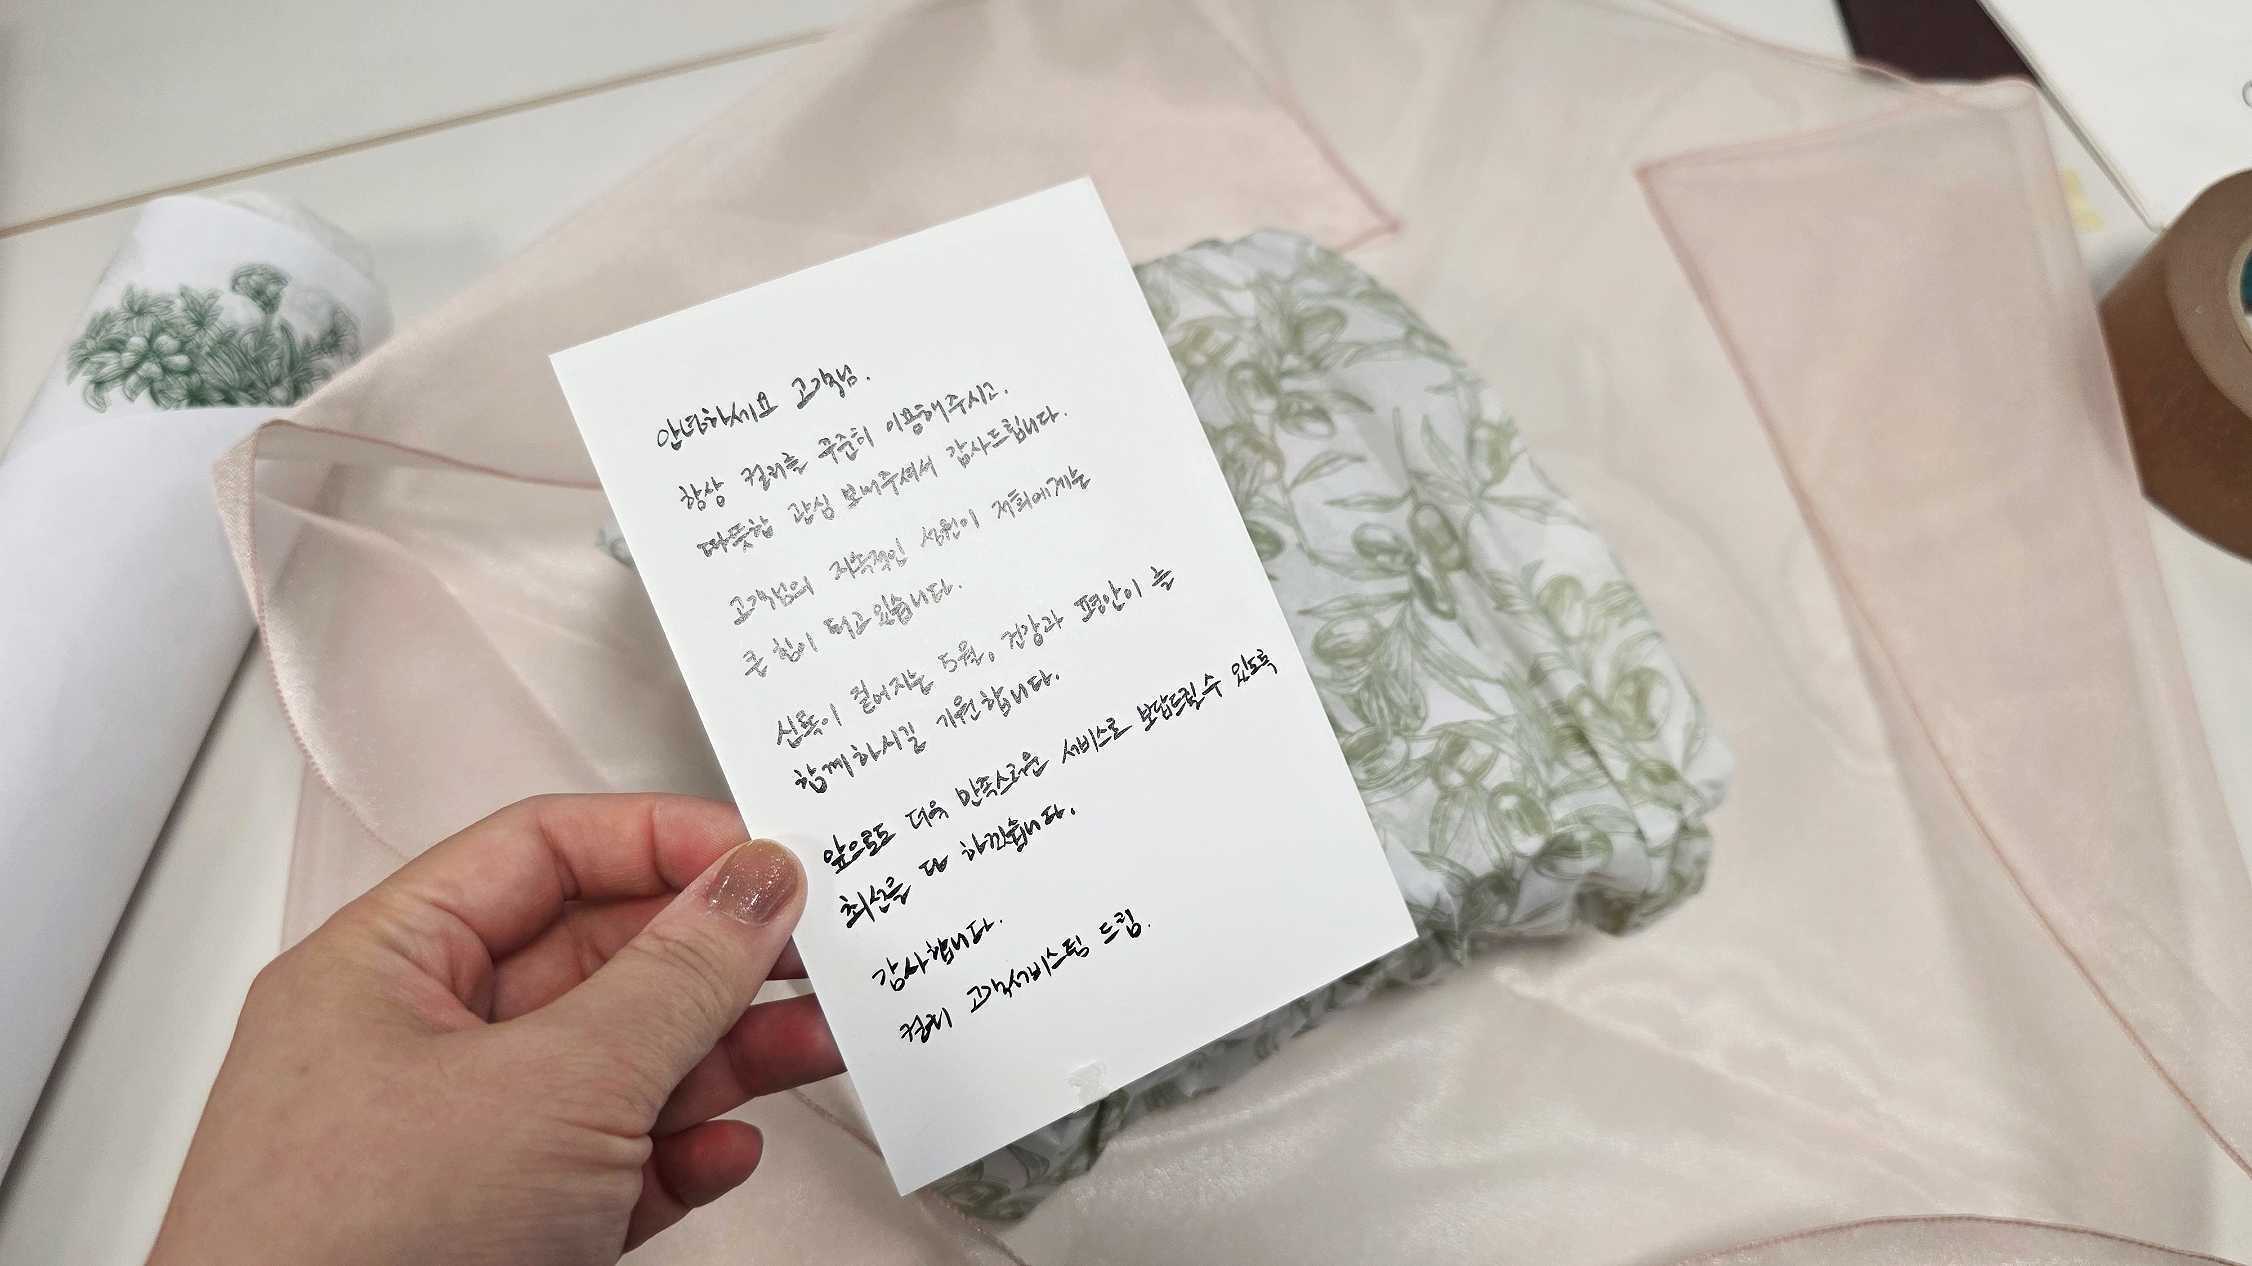 안녕하세요 고객님.
항상 컬리를 꾸준히 이용해주시고.
따뜻한 관심 보내주셔서 감사드립니다.
고객님의 지속적인 성원이 저희에게는
큰 힘이 되고있습니다.
신록이 짙어지는 5월. 건강과 평안이 늘
함께하시길 기원합니다.
앞으로도 더욱 만족스러운 서비스로 보답드릴수 있도록
최선을 다 하겠습니다.
감사합니다.
컬리 고객서비스팀 드림.